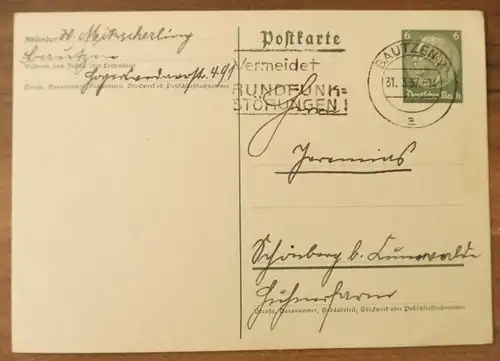 Absender: W. Mitscherling
Bautzen
Wohnort, auch Zustell- oder Leitpostamt
491
Straße, Hausnummer, Gebäudeteil, Stockwerk od. Postschließfachnummer
Postkarte
Vermeidet
RUNDFUNK=
STÖRUNGEN!
BAUTZEN
31.3.37.-14
a
6 6
Deutsches Reich
Herrn
Jeremias
Schönberg b. Cunewalde
Hühnerfarm
Straße, Hausnummer, Gebäudeteil, Stockwerk oder Postschließfachnummer